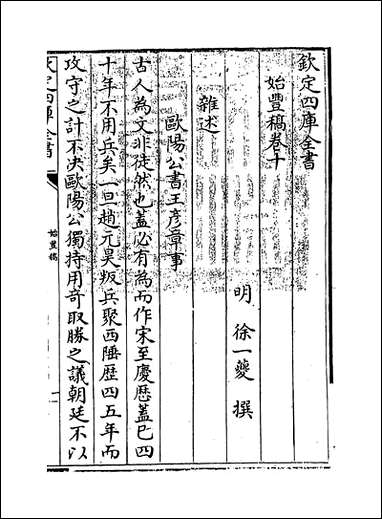 欽定四庫全書
始豐稿卷十
明 徐一夔 撰
雜述
歐陽公書王彥章事
古人為文非徒然也蓋必有為而作宋至慶厯蓋已四
十年不用兵矣一旦趙元昊叛兵聚西陲歴四五年而
攻守之計不决歐陽公獨持用奇取勝之議朝廷不以
欽定四庫全書
始豐稿
一